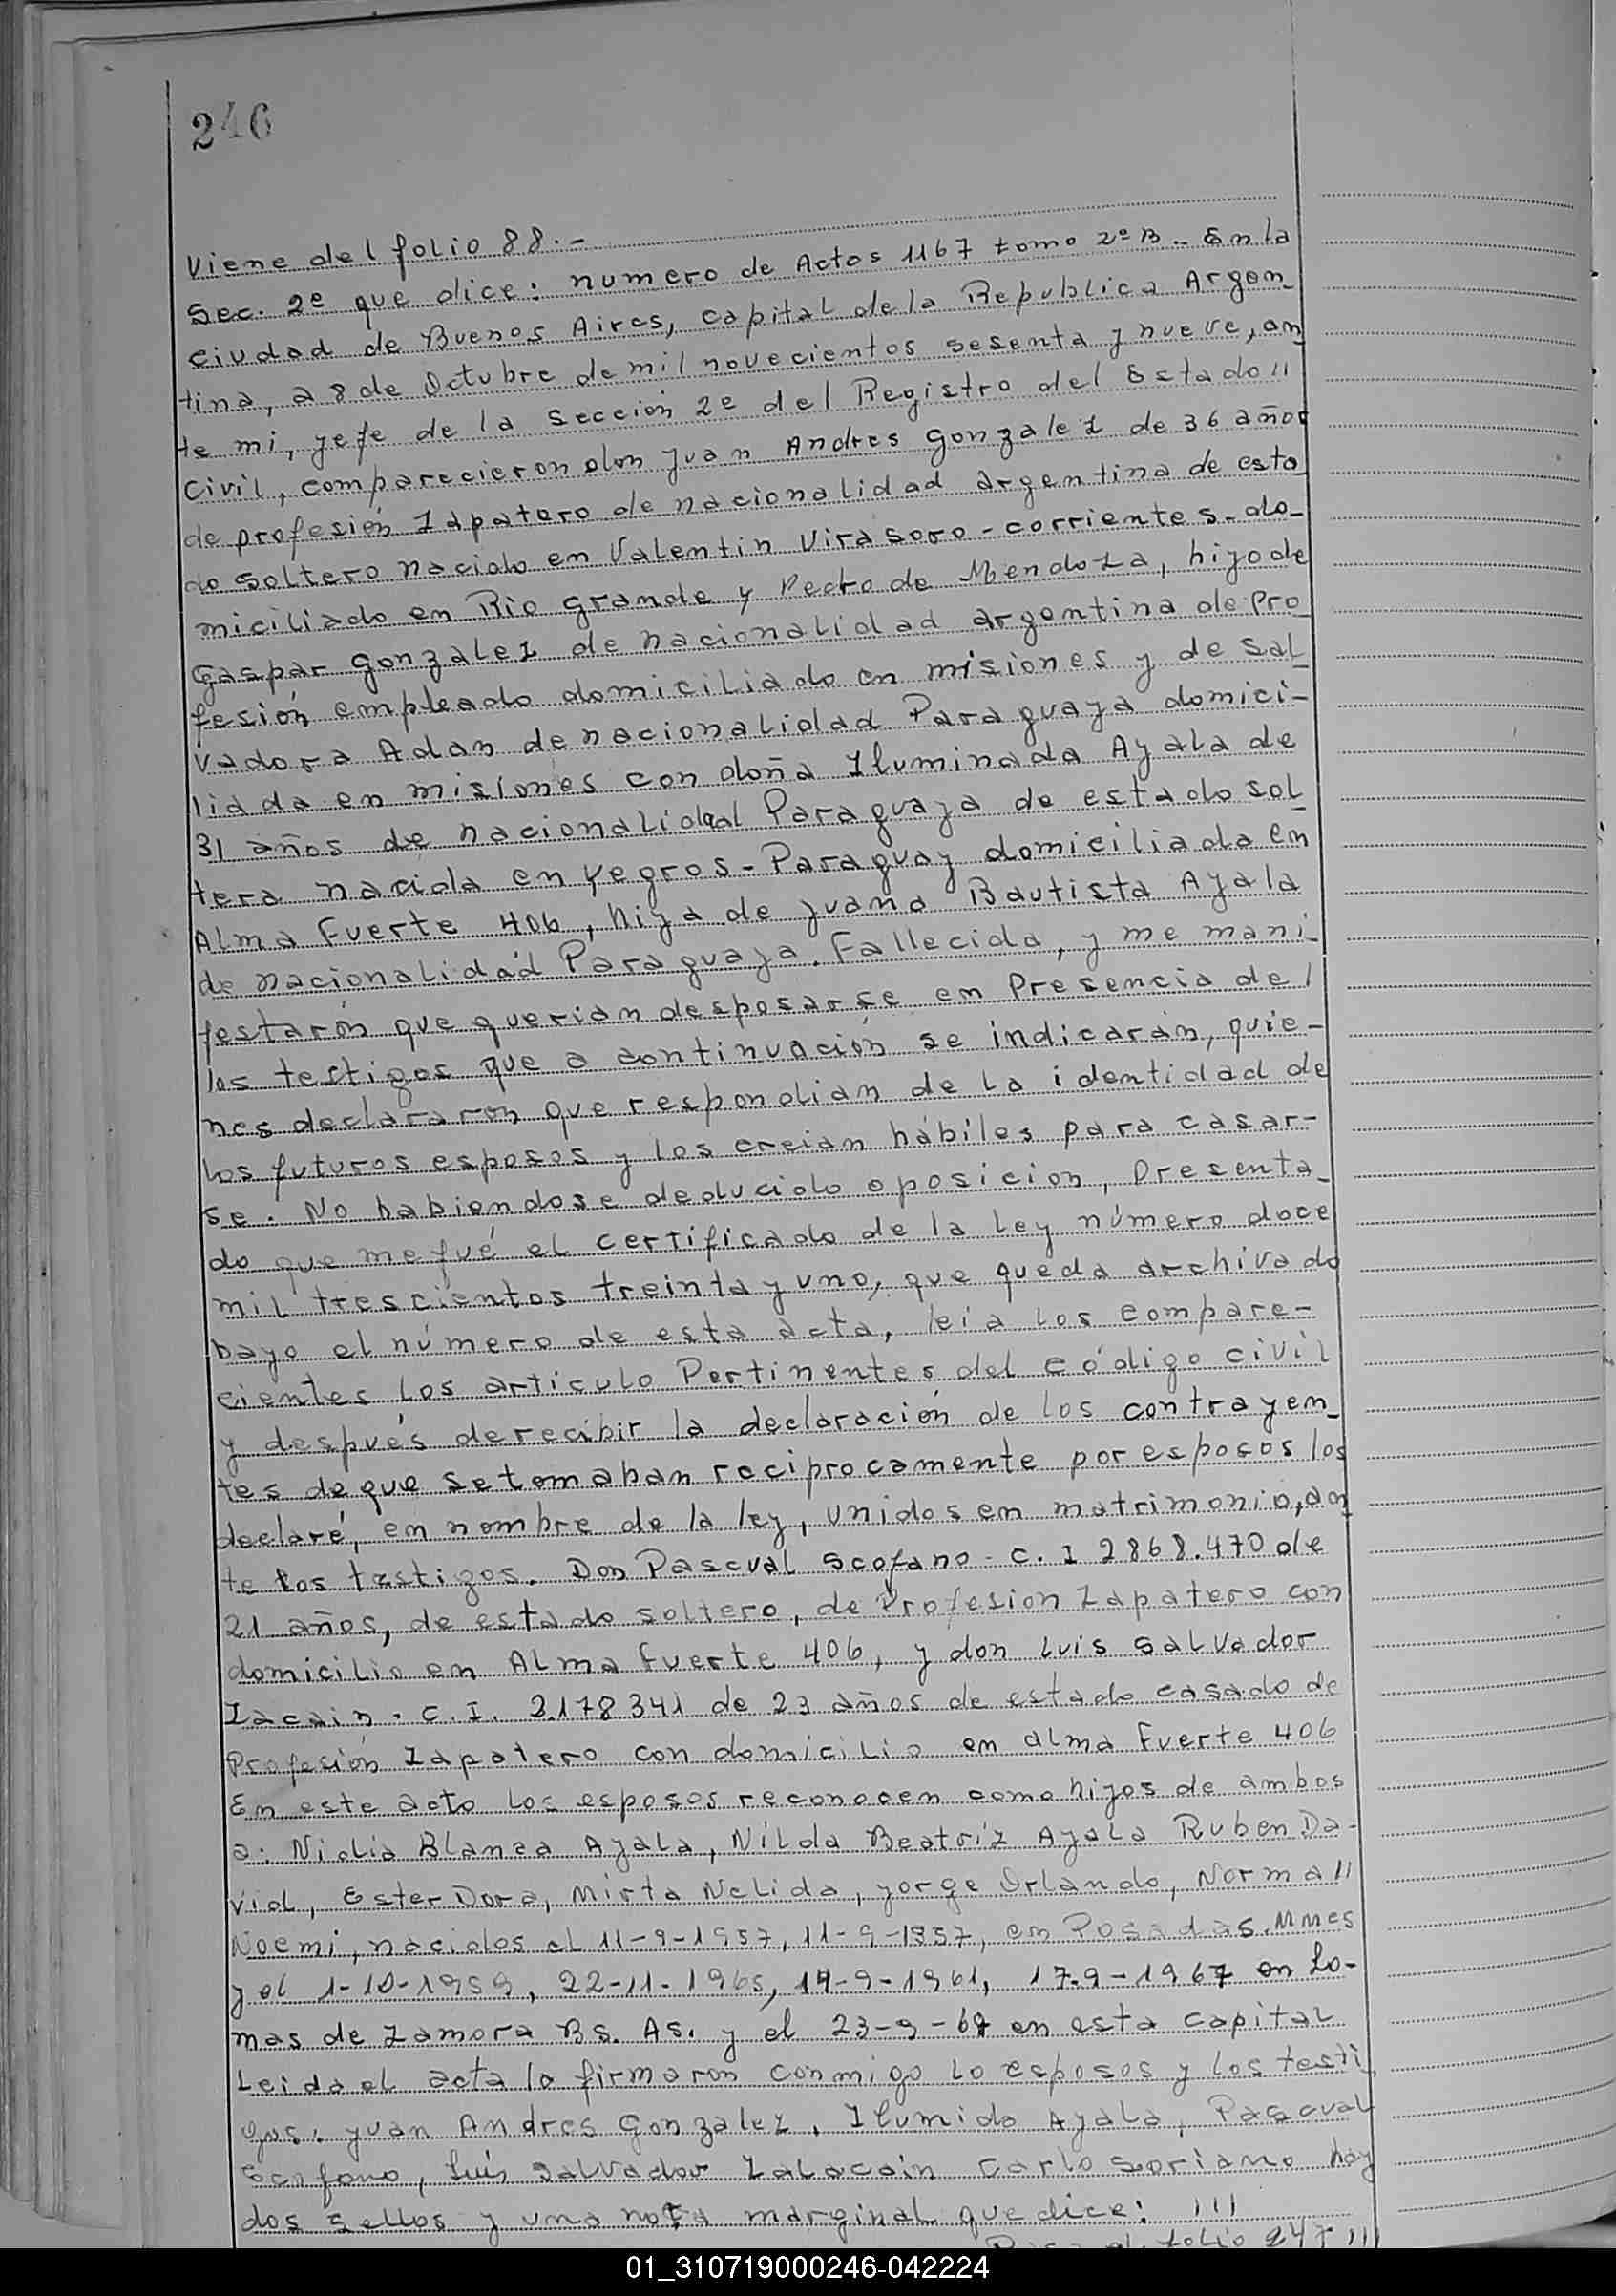 246
Viene del folio 88.-
Sec. 2e que dice: numero de Actos 1167 tomo 2º B.. En la
ciudad de Buenos Aires, capital de la Republica Argen_
tina, a 8 de Octubre de mil novecientos sesenta y nueve, an
te mi, yefe de la sección 2e del Registro del Estado 11
Civil, comparecieron don yuan Andres gonzalez de 36 años
de profesión Zapatero de nacionalidad argentina de esta
do soltero nacido en Valentin Virasoro - corrientes - do_
miciliado en Rio grande y Pedro de Mendoza, hiyo de
gaspar gonzalez de nacionalidad argentina de pro
fesión empleado domiciliado en misiones y de sal_
vadora Adan de nacionalidad Paraguaya domici-
liada en misiones con doña Iluminada Ayala de
31 años de nacionalidad Paraguaya de estado sol
tera nacida en Yegros - Paraguay domiciliada en
Alma Fuerte 406, hiya de yuana Bautista Ayala
de nacionalidad Paraguaya. Fallecida, y me mani_
festarón que querian desposarse en Presencia de /
los testigos que a continuación se indicarán, quie-
nes declararón que respondian de la identidad de
los futuros esposos y los creian hábiles para casar-
se. No habiendose deducido oposición, presenta_
do que me fué el certificado de la Ley número doce
mil trescientos treinta y uno, que queda archivado
bayo el número de esta acta, leia los compare-
cientes los articulo Pertinentes del código civil
y después de recibir la declaración de los contrayen_
tes de que se tomaban reciprocamente por esposos los
declaré, en nombre de la ley, unidos en matrimonio, an
te los testigos. Don Pascual Scofano - C. I 2868.470 de
21 años, de estado soltero, de Profesion Zapatero con
domicilio en Alma fuerte 406, y don Luis Salvador
Zacain. C. I. 2.178341 de 23 años de estado casado de
Profesión Zapatero con domicilio en alma Fuerte 406
En este acto los esposos reconocen como hijos de ambos
a: Nidia Blanca Ayala, Nilda Beatriz Ayala Ruben Da-
vid, Ester Dora, Mirta Nelida, yorge Orlando, Norma 11
Noemi, nacidos el 11-9-1957, 11-9-1957, en Posadas. Mmes
y el 1-10-1959, 22-11-1965, 14-9-1961, 17-9-1967 en Lo-
mas de Zamora Bs. As. y el 23-9-69 en esta capital
Leida el acta la firmaron conmigo lo esposos y los testi
gos. yuan Andres gonzalez, Ilumida Ayala, Pascual
Scofano, Luis Salvador Zalacain Carlo soriano hay
dos sellos y una nota marginal que dice: 111
al folio 247 111
01_310719000246-042224